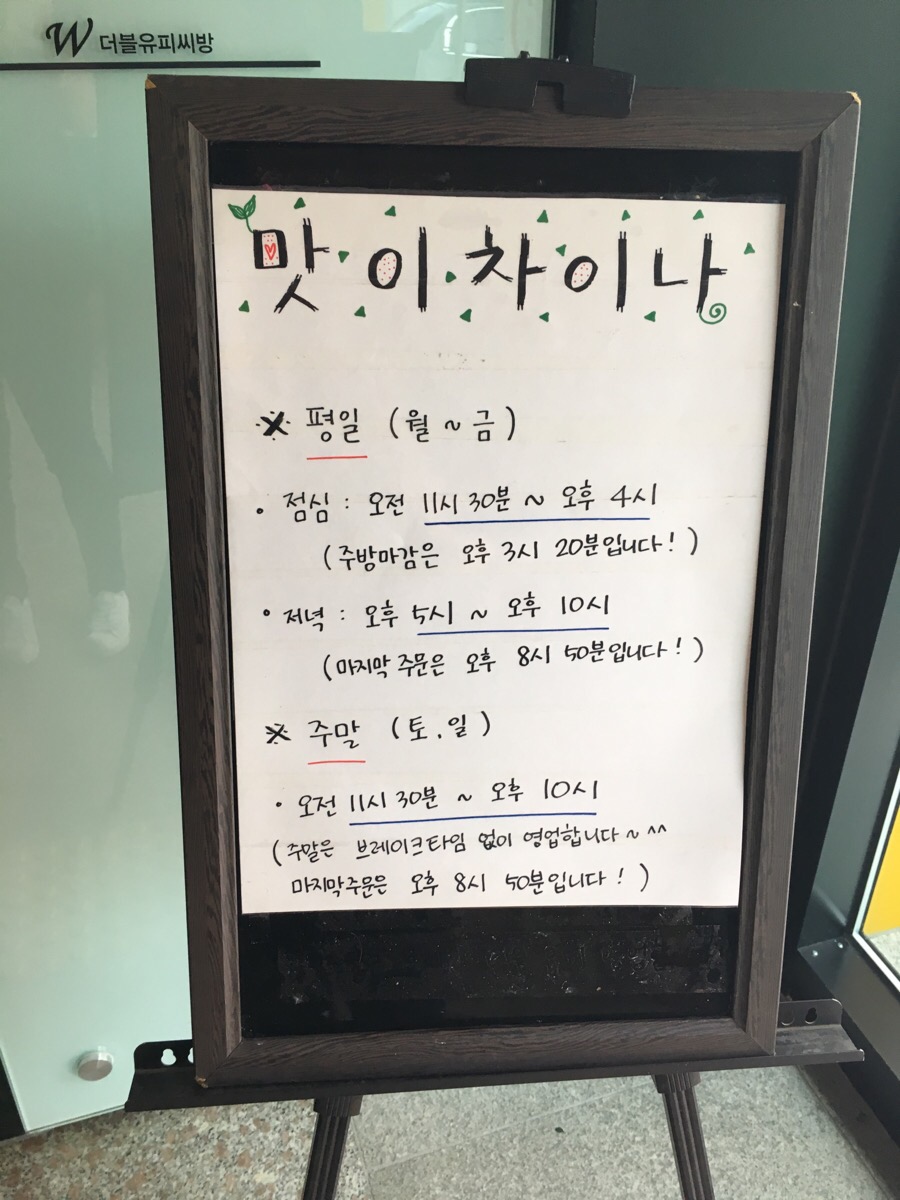 W 더블유피씨방
맛이차이나
※ 평일 (월 ~ 금)
• 점심 : 오전 11시 30분 ~ 오후 4시
(주방마감은 오후 3시 20분입니다! )
• 저녁 : 오후 5시 ~ 오후 10시
(마지막 주문은 오후 8시 50분입니다! )
※ 주말 (토.일)
• 오전 11시 30분 ~ 오후 10시
(주말은 브레이크타임 없이 영업합니다~ ^^
마지막주문은 오후 8시 50분입니다! )